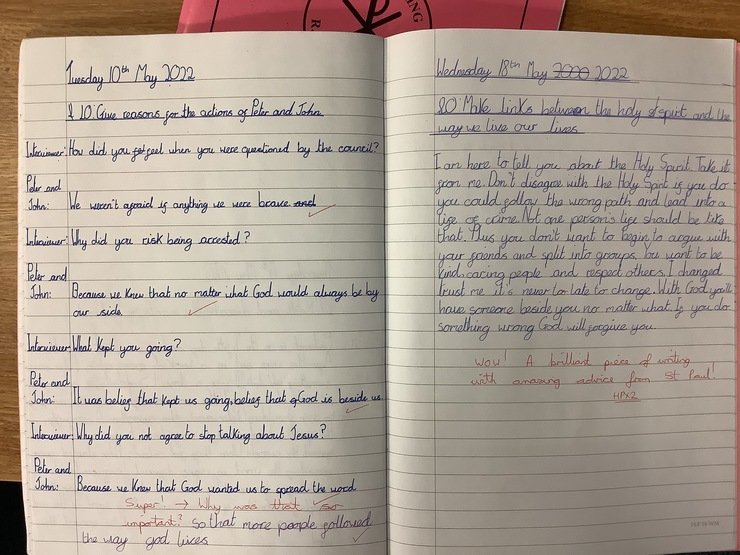 ING
R
Tuesday 10th May 2022
L.O: Give reasons for the actions of Peter and John
Interviewer: How did you feel when you were questioned by the council?
Peter and
John: We weren't agraid if anything we were brave and
Interviewer: Why did you risk being arrested?
Peter and
John: Because we knew that no matter what God would always be by
our side.
Interviewer: What kept you going?
Peter and
John: It was belief that kept us going, belief that God is beside us.
Interviewer: Why did you not agree to stop talking about Jesus?
Peter and
John: Because we knew that God wanted us to spread the word
Super! → Why was that so
important? So that more people followed
the way god lives
Wednesday 18th May 2000 2022
LO: Make links between the holy spirit and the
way we live our lives
I am here to tell you about the Holy Spirit. Take it
from me. Don't disagree with the Holy Spirit if you do
you could follow the wrong path and lead into a
life of crime. Not one person's life should be like
that. Plus you don't want to begin to argue with
your friends and split into groups. You want to be
kind, caring people and respect others. I changed
trust me it's never to late to change. With God you'll
have someone beside you no matter what. If you do
something wrong God will forgive you.
Wow! A brilliant piece of writing
with amazing advice from St Paul!
HPx2